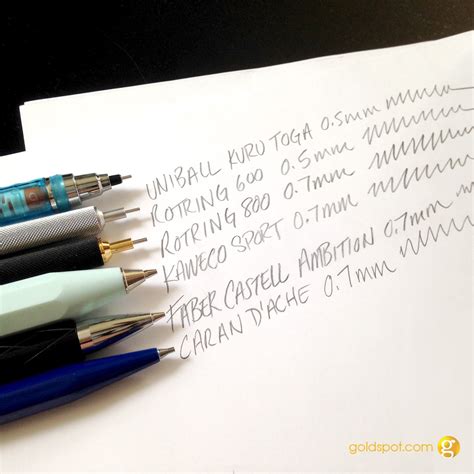 UNIBALL KURU TOGA 0.5mm
ROTRING 600 0.5mm
ROTRING 800 0.7mm
KAWECO SPORT 0.7mm
FABER CASTELL AMBITION 0.7mm
CARAN D'ACHE 0.7mm
goldspot.com g